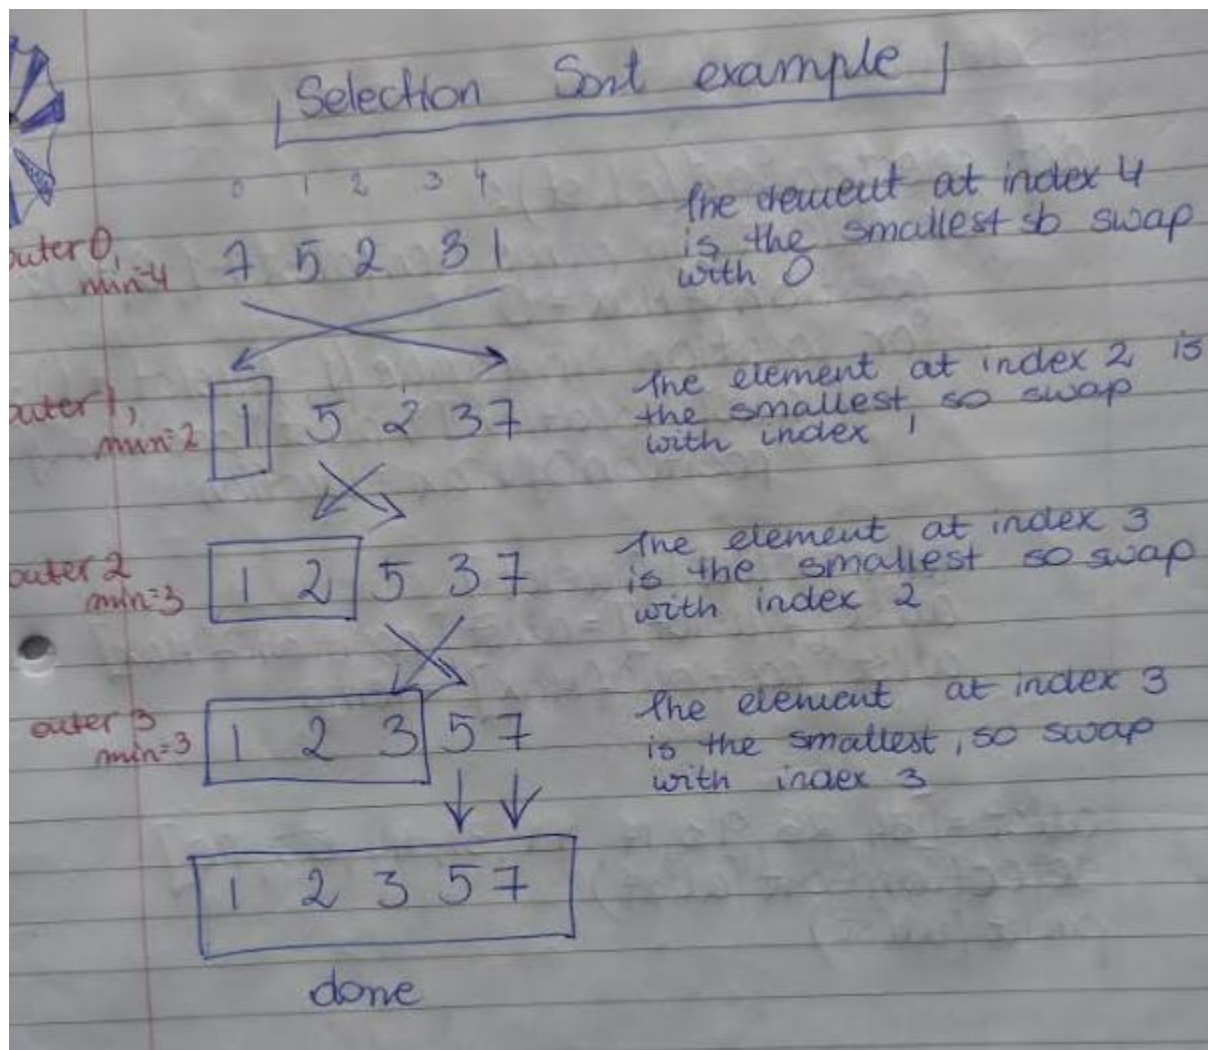 Selection Sort example
0 1 2 3 4
outer 0,
min=4
7 5 2 3 1
The element at index 4
is the smallest so swap
with 0
outer 1,
min=2
1 5 2 3 7
The element at index 2 is
the smallest, so swap
with index 1
outer 2
min=3
1 2 5 3 7
The element at index 3
is the smallest so swap
with index 2
outer 3
min=3
1 2 3 5 7
The element at index 3
is the smallest, so swap
with index 3
1 2 3 5 7
done